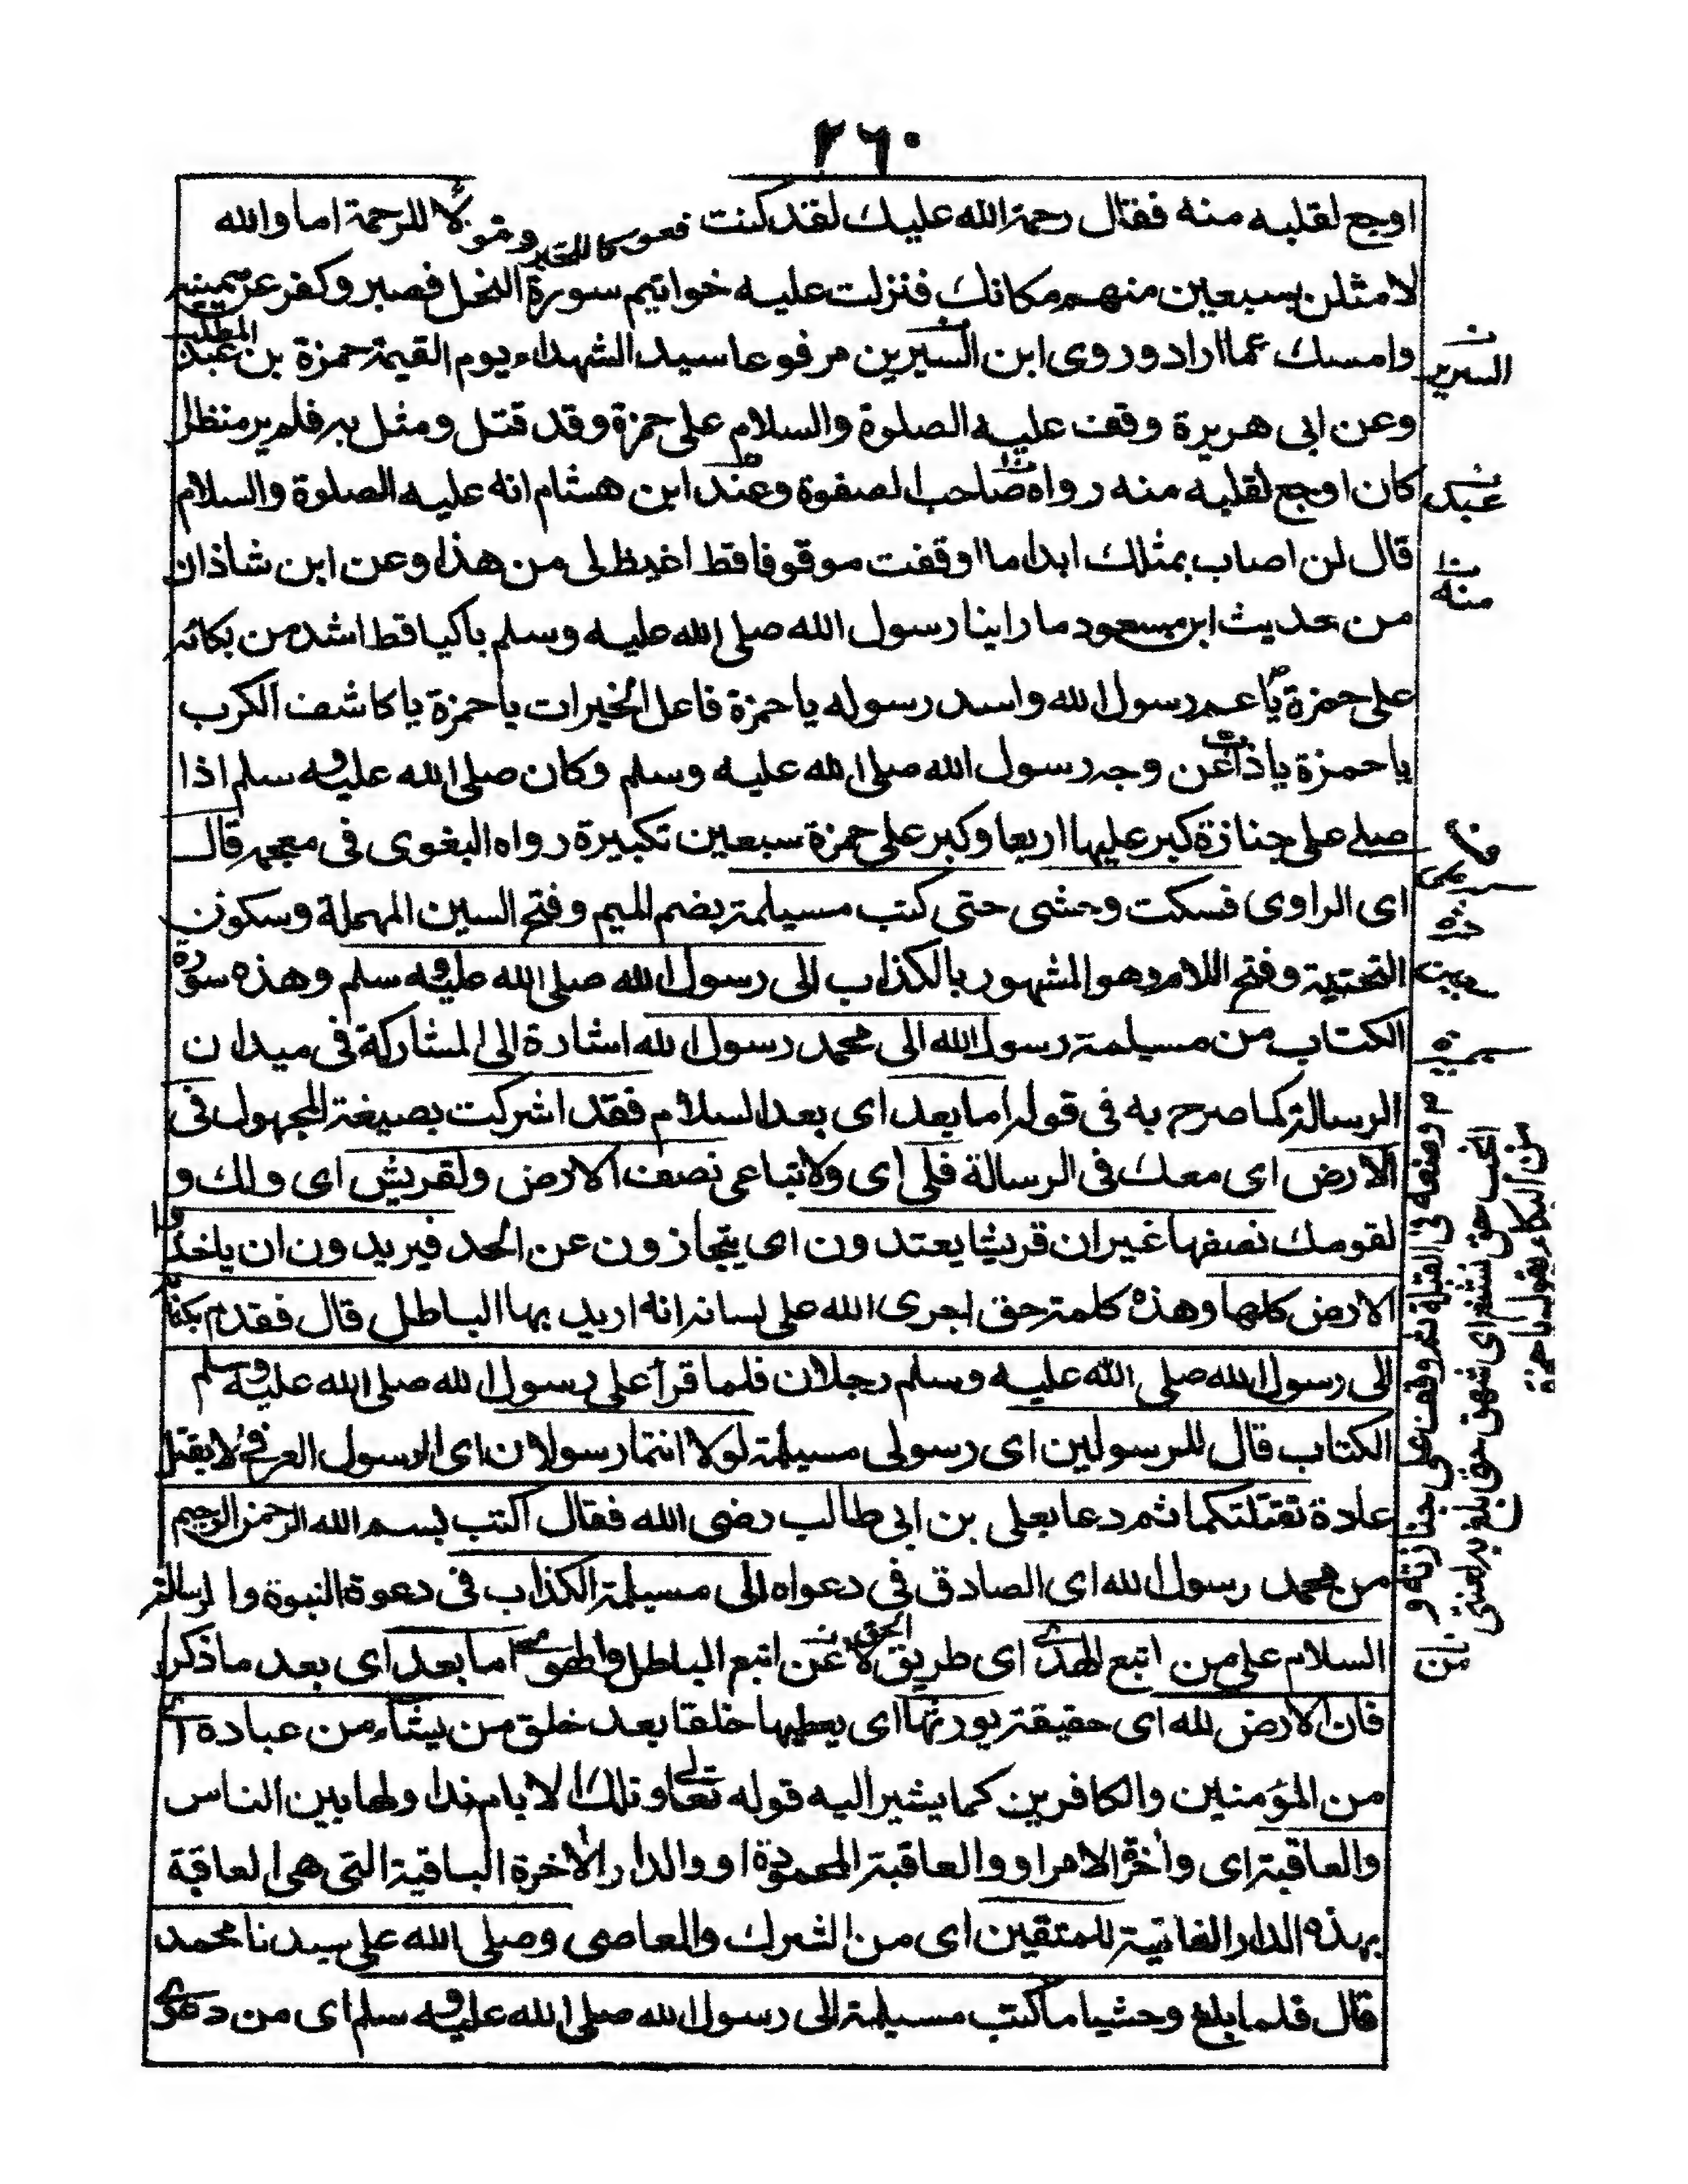 ٢٦٠
اوجع لقلبه منه فقال رحمة الله عليك لقد كنت فعولا للخير وصولا للرحمة اما والله
لامثلن بسبعين منهم مكانك فنزلت عليه خواتيم سورة النحل فصبر وكفر عن يمينه
وامسك عما اراد وروى ابن السيرين مرفوعا سيد الشهداء يوم القيمة حمزة بن عبد المطلب
وعن ابى هريرة وقف عليه الصلوة والسلام على حمزة وقد قتل ومثل به فلم ير منظرا
كان اوجع لقلبه منه رواه صاحب الصفوة وعند ابن هشام انه عليه الصلوة والسلام
قال لن اصاب بمثلك ابدا ما اوقفت موقوفا قط اغيظ لى من هذا وعن ابن شاذان
من حديث ابن مسعود ما راينا رسول الله صلى الله عليه وسلم باكيا قط اشد من بكائه
على حمزة يا عم رسول الله واسد رسوله يا حمزة فاعل الخيرات يا حمزة يا كاشف الكرب
يا حمزة يا ذابا عن وجه رسول الله صلى الله عليه وسلم وكان صلى الله عليه وسلم اذا
صلى على جنازة كبر عليها اربعا وكبر على حمزة سبعين تكبيرة رواه البغوى فى معجمه قال
اى الراوى فسكت وحشى حتى كتب مسيلمة بضم الميم وفتح السين المهملة وسكون
التحتية وفتح اللام وهو المشهور بالكذاب الى رسول الله صلى الله عليه وسلم وهذه سورة
الكتاب من مسيلمة رسول الله الى محمد رسول الله اشارة الى المشاركة فى ميدان
الرسالة كما صرح به فى قوله اما بعد اى بعد السلام فقد اشركت بصيغة المجهول فى
الارض اى معك فى الرسالة فلى اى ولاتباعى نصف الارض ولقريش اى ولك و
لقومك نصفها غير ان قريشا يعتدون اى يتجازون عن الحد فيريدون ان ياخذوا
الارض كلها وهذه كلمة حق اجرى الله على لسانه انه اريد بها الباطل قال فقدم بكتابه
الى رسول الله صلى الله عليه وسلم رجلان فلما قرأ على رسول الله صلى الله عليه وسلم
الكتاب قال للرسولين اى رسولى مسيلمة لولا انتما رسولان اى الرسول العرفى لا يقتل
عادة تقتلتكما ثم دعا بعلى بن ابى طالب رضى الله فقال اكتب بسم الله الرحمن الرحيم
من محمد رسول الله اى الصادق فى دعواه الى مسيلمة الكذاب فى دعوة النبوة والرسالة
السلام على من اتبع الهدى اى طريق الحق لا عن اتبع الباطل والهوى اما بعد اى بعد ما ذكر
فان الارض لله اى حقيقة يورثها اى يعطيها خلقا بعد خلق من يشاء من عباده اى
من المؤمنين والكافرين كما يشير اليه قوله تعالى وتلك الايام نداولها بين الناس
والعاقبة اى واخرة الامر او والعاقبة المحمودة او والدار الآخرة الباقية التى هى العاقبة
بهذه الدار الفانية للمتقين اى من الشرك والمعاصى وصلى الله على سيدنا محمد
قال فلما بلغ وحشيا ما كتب مسيلمة الى رسول الله صلى الله عليه وسلم اى من دعوى
السرير
عبد
منه
وضعه فى القبلة ثم وقف على جنازته و
انتحب حتى نشغ اى شهق حتى بلغ به الغشى
من البكاء يقول يا حمزة